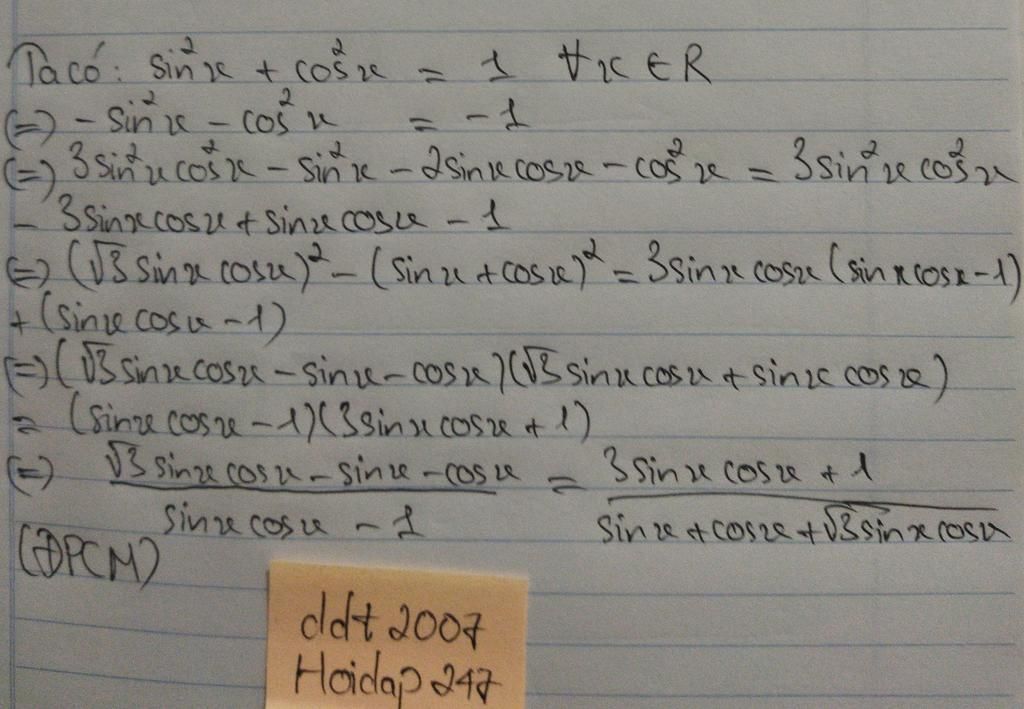 Ta có: sin²x + cos²x = 1 ∀x ∈ R
(=) -sin²x - cos²x = -1
(=) 3sin²x cos²x - sin²x - 2sinx cosx - cos²x = 3sin²x cos²x
- 3sinx cosx + sinx cosx - 1
(=) (√3 sinx cosx)² - (sinx + cosx)² = 3sinx cosx (sinx cosx - 1)
+ (sinx cosx - 1)
(=) (√3 sinx cosx - sinx - cosx)(√3 sinx cosx + sinx cosx)
= (sinx cosx - 1)(3sinx cosx + 1)
(=) (√3 sinx cosx - sinx - cosx)/(sinx cosx - 1) = (3sinx cosx + 1)/(sinx + cosx + √3 sinx cosx)
(ĐPCM)
ddt 2007
Hoidap 247